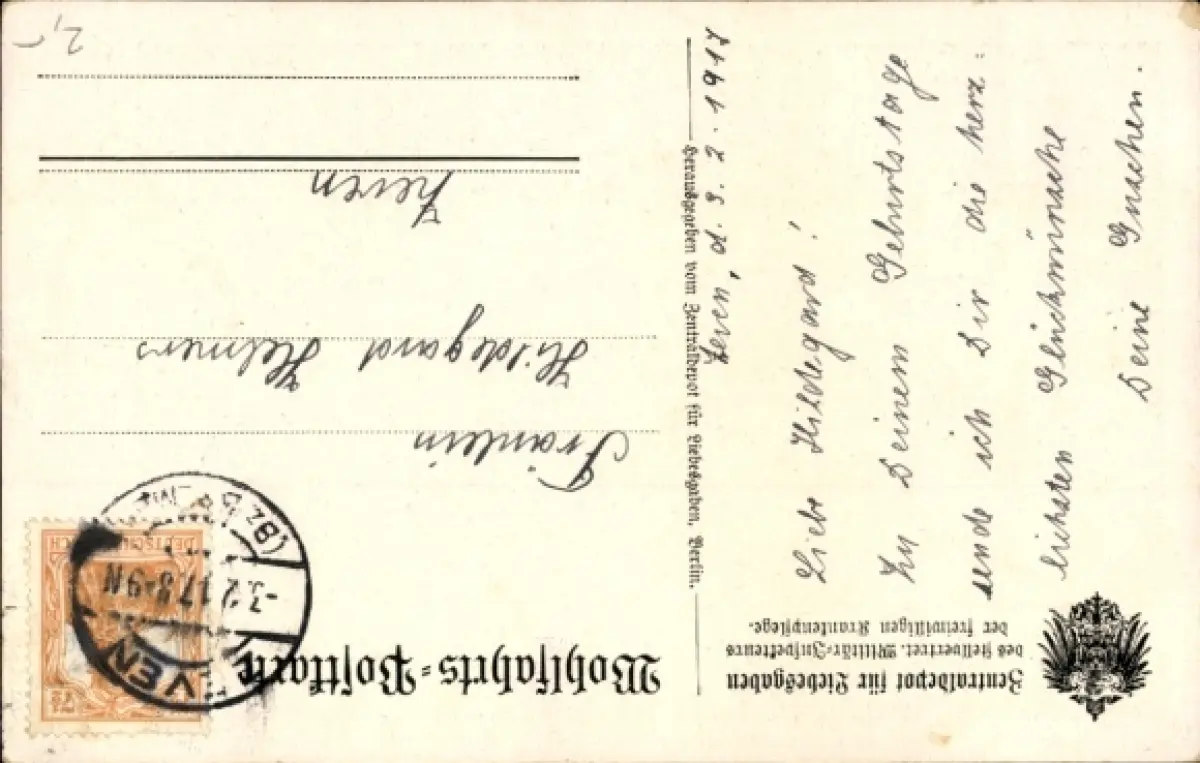 Wohlfahrts-Postkarte
Zentraldepot für Liebesgaben
des stellvertret. Militär-Inspekteurs
der freiwilligen Krankenpflege.
Herausgegeben vom Zentraldepot für Liebesgaben, Berlin.
DEUTSCHES REICH
7½
VEN
-3.2.17.8-9N
(BZ.
Fräulein
Hildegard Helmers
Zeven
Zeven, d. 3. 2. 1917
Liebe Hildegard!
Zu Deinem Geburtstage
sende ich Dir die herz-
lichsten Glückwünsche
Deine Gnachen.
2,-